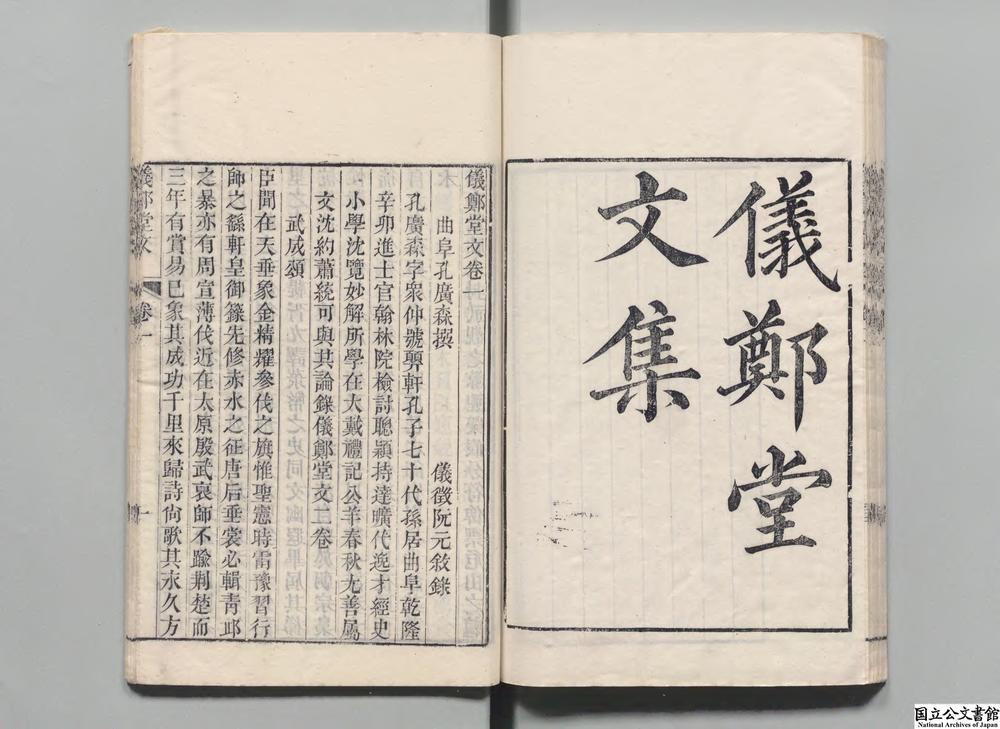 儀鄭堂
文集
儀鄭堂文卷一
曲阜孔廣森撰
儀徵阮元敘錄
孔廣森字衆仲號顨軒孔子七十代孫居曲阜乾隆
辛卯進士官翰林院檢討聰穎持達曠代逸才經史
小學沈覽妙解所學在大戴禮記公羊春秋尤善屬
文沈約蕭統可與共論錄儀鄭堂文二卷
武成頌
臣聞在天垂象金精燿參伐之旗惟聖憲時雷豫習行
師之繇軒皇御籙先修赤水之征唐后垂裳必輯青邱
之暴亦有周宣薄伐近在太原殷武裒師不踰荆楚而
三年有賞易巳象其成功千里來歸詩尙歌其永久方
儀鄭堂文
卷一
一
国立公文書館
National Archives of Japan